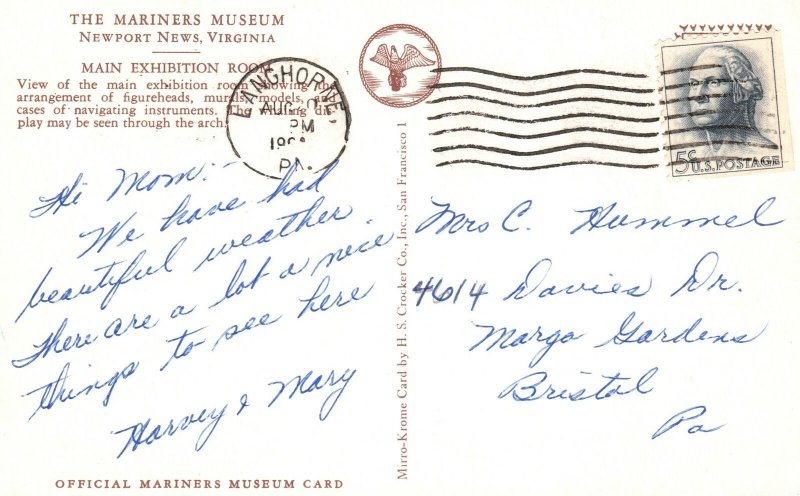 THE MARINERS MUSEUM
NEWPORT NEWS, VIRGINIA
MAIN EXHIBITION ROOM
View of the main exhibition room showing the
arrangement of figureheads, murals, models, and
cases of navigating instruments. The
play may be seen through the arch.
LANGHORNE,
AUG
PM
PA.
5c U.S. POSTAGE
Hi Mom:-
We have had
beautiful weather.
There are a lot a nice
things to see here
Harvey & Mary
OFFICIAL MARINERS MUSEUM CARD
Mirro-Krome Card by H. S. Crocker Co., Inc., San Francisco 1
Mrs C. Hummel
4614 Davies Dr.
Margo Gardens
Bristol
Pa